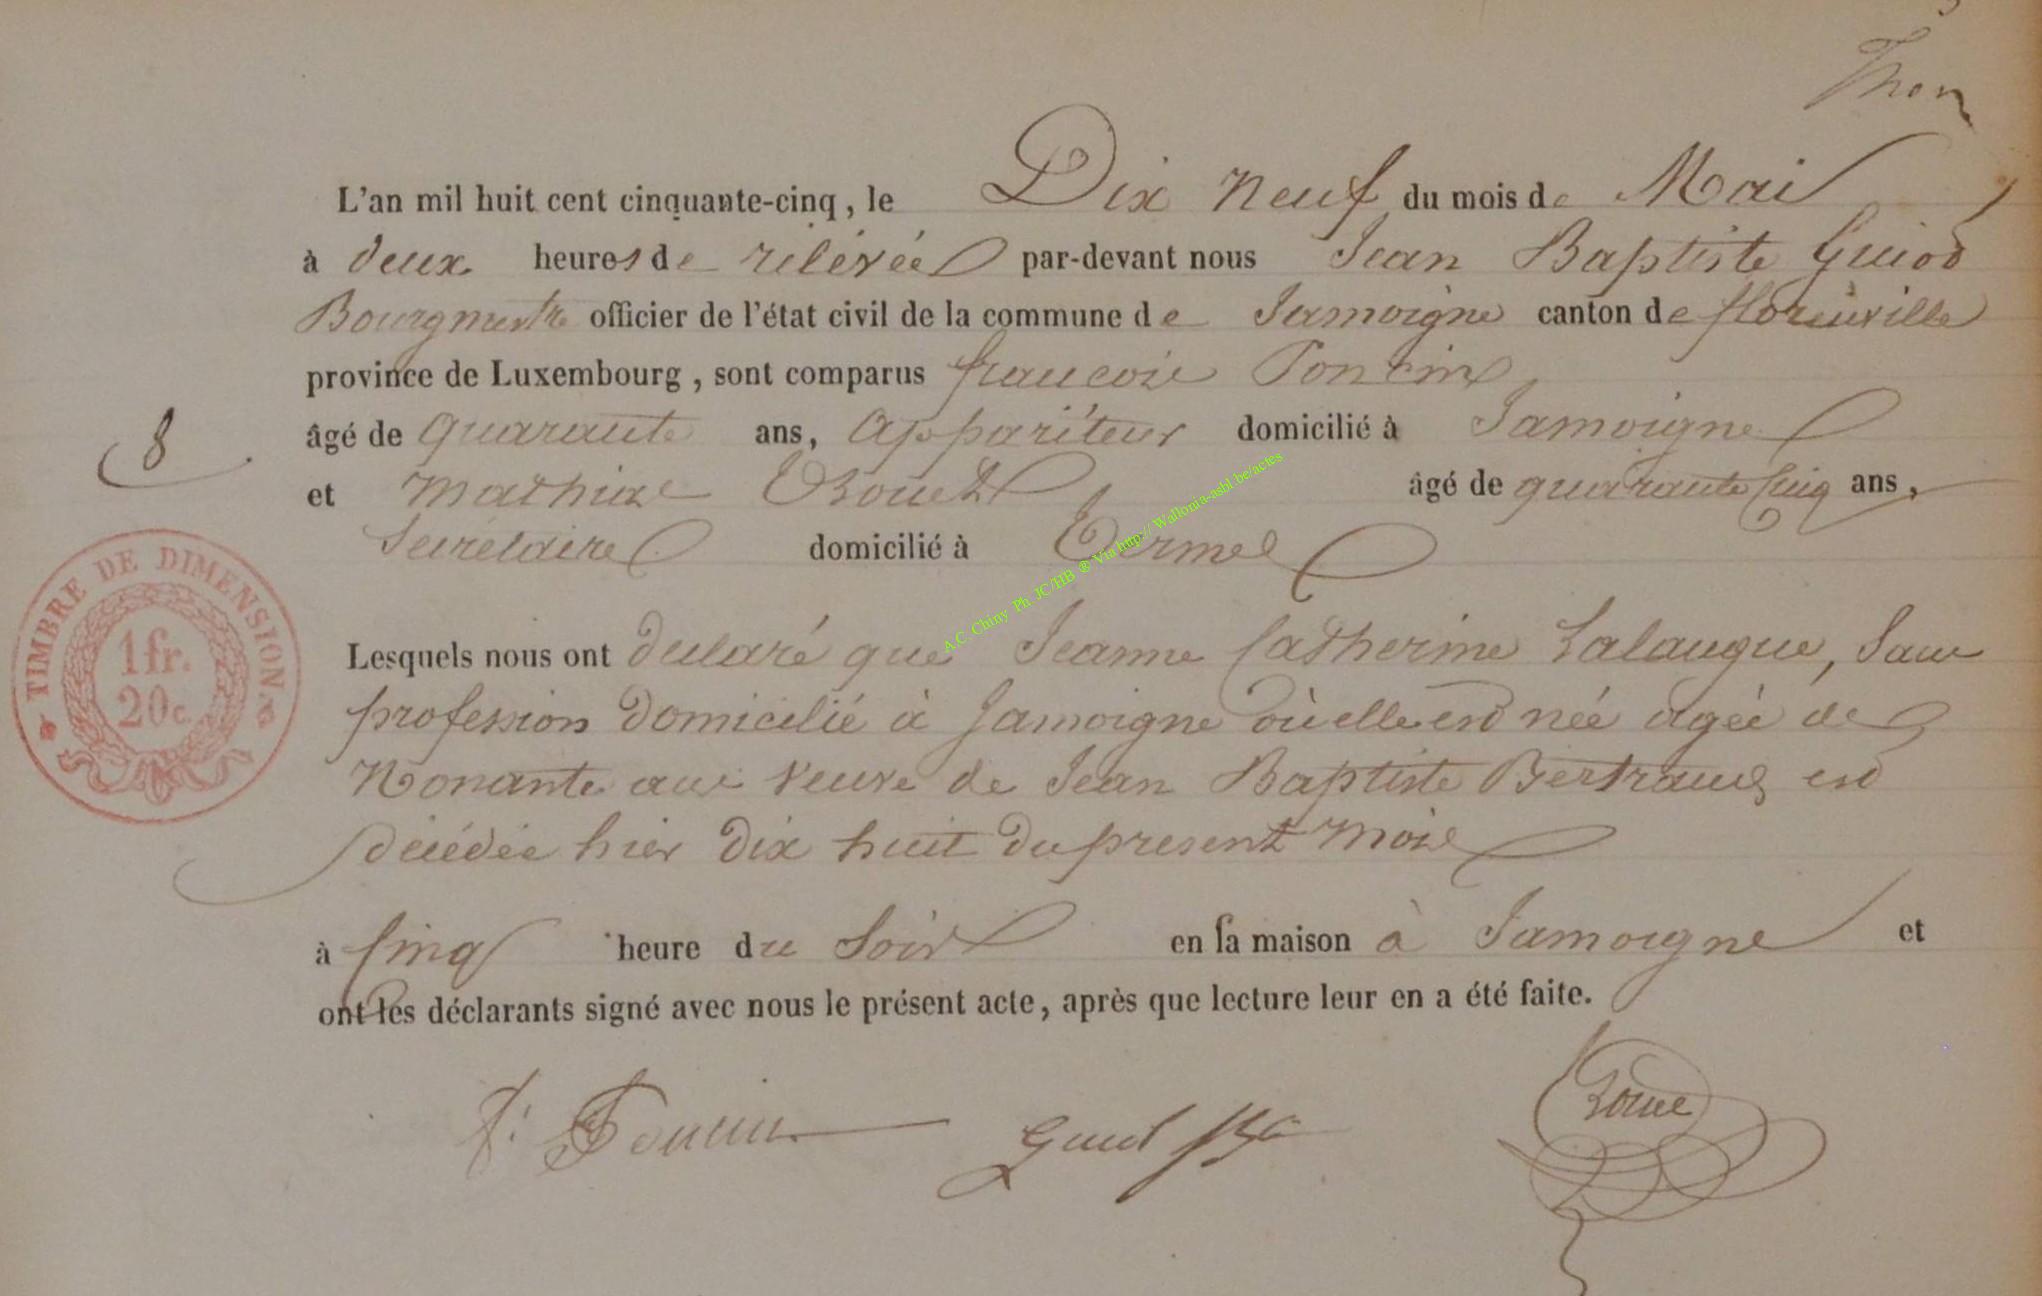 Thon
L'an mil huit cent cinquante-cinq, le Dix neuf du mois de Mai
à deux heures de rélévée par-devant nous Jean Baptiste Guiot
Bourgmestre officier de l'état civil de la commune de Jamoigne canton de florenville
province de Luxembourg, sont comparus francois Poncin
âgé de quarante ans, appariteur domicilié à Jamoigne
8
et Mathias âgé de quarante Cinq ans,
Secrétaire domicilié à Termes
TIMBRE DE DIMENSION.
1fr.
20c.
Lesquels nous ont declaré que Jeanne Catherine Lalangue, Sans
profession domicilié à Jamoigne où elle est née agée de
Nonante ans veuve de Jean Baptiste Bertrand est
décédée hier dix huit du present mois
à Cinq heure du Soir en sa maison à Jamoigne et
ont les déclarants signé avec nous le présent acte, après que lecture leur en a été faite.
f: Poncin
A.C. Chiny Ph. JC/HB ® Via http:// Wallonia-asbl.be/actes